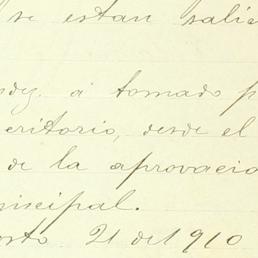 se estan salie
á tomado p
eritorio, desde el
de la aprovacio
nicipal.
osto 21 del 1910